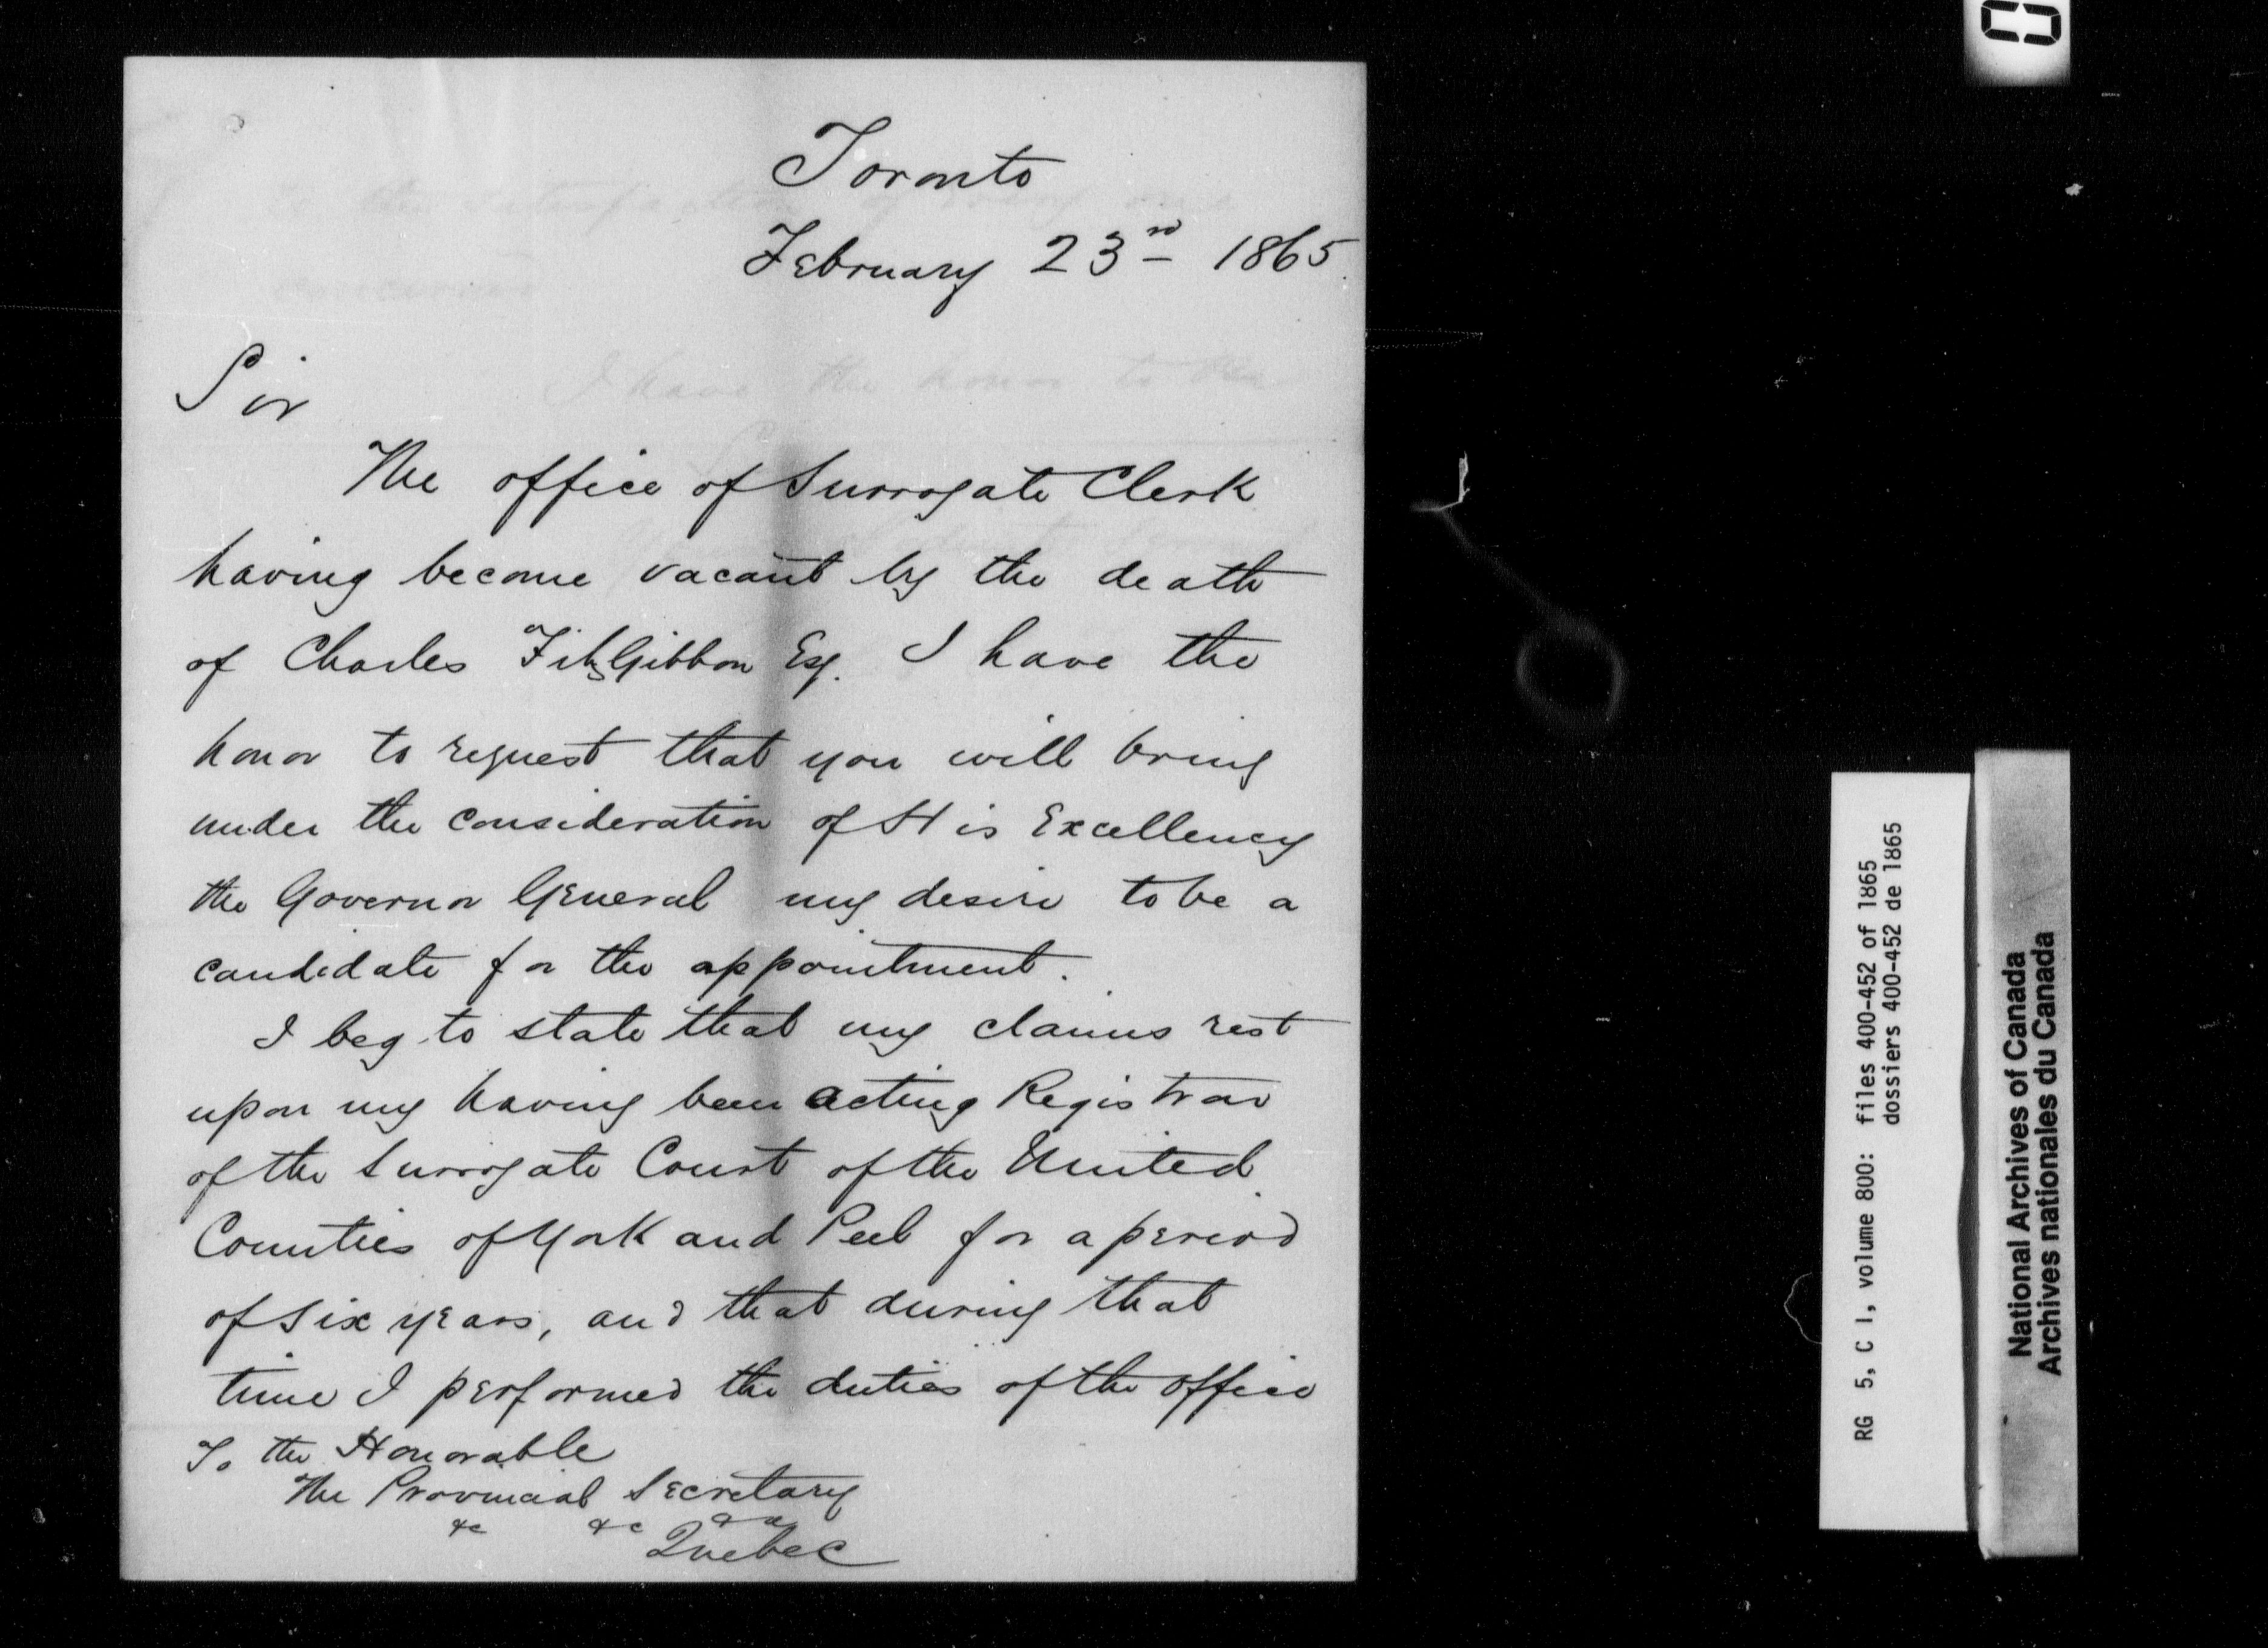 Toronto
February 23rd 1865
Sir
The office of Surrogate Clerk
having become vacant by the death
of Charles FitzGibbon Esq. I have the
honor to request that you will bring
under the consideration of His Excellency
the Governor General my desire to be a
candidate for the appointment.
I beg to state that my claims rest
upon my having been acting Registrar
of the Surrogate Court of the United
Counties of York and Peel for a period
of six years, and that during that
time I performed the duties of the office
To the Honorable
The Provincial Secretary
&c &c &c
Quebec
RG 5, C 1, volume 800: files 400-452 of 1865
dossiers 400-452 de 1865
National Archives of Canada
Archives nationales du Canada